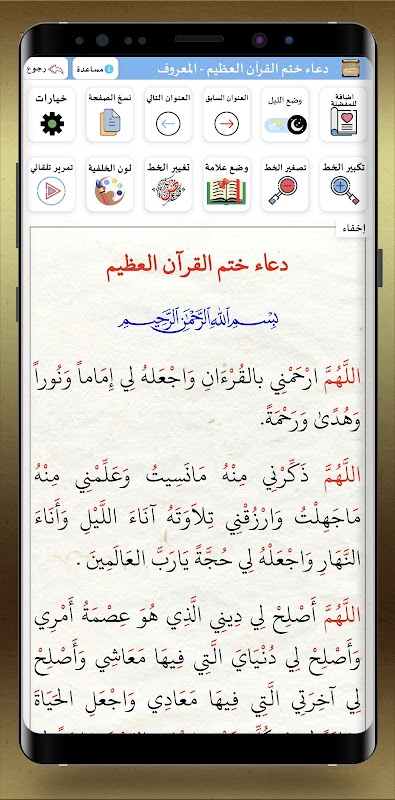 دعاء ختم القرأن العظيم - المعروف
مساعدة
رجوع
اضافة للمفضلة
وضع الليل
العنوان السابق
العنوان التالي
نسخ الصفحة
خيارات
تكبير الخط
تصغير الخط
وضع علامة
تغيير الخط
لون الخلفية
تمرير تلقائي
إخفاء
دعاء ختم القرآن العظيم
بِسْمِ اللهِ الرَّحْمَنِ الرَّحِيمِ
اللَّهُمَّ ارْحَمْنِي بالقُرْءَانِ وَاجْعَلهُ لِي إِمَاماً وَنُوراً
وَهُدًى وَرَحْمَةً.
اللَّهُمَّ ذَكِّرْنِي مِنْهُ مَانَسِيتُ وَعَلِّمْنِي مِنْهُ
مَاجَهِلْتُ وَارْزُقْنِي تِلاَوَتَهُ آنَاءَ اللَّيْلِ وَأَنَاءَ
النَّهَارِ وَاجْعَلْهُ لِي حُجَّةً يَارَبَّ العَالَمِينَ .
اللَّهُمَّ أَصْلِحْ لِي دِينِي الَّذِي هُوَ عِصْمَةُ أَمْرِي
وَأَصْلِحْ لِي دُنْيَايَ الَّتِي فِيهَا مَعَاشِي وَأَصْلِحْ
لِي آخِرَتِي الَّتِي فِيهَا مَعَادِي وَاجْعَلِ الحَيَاةَ